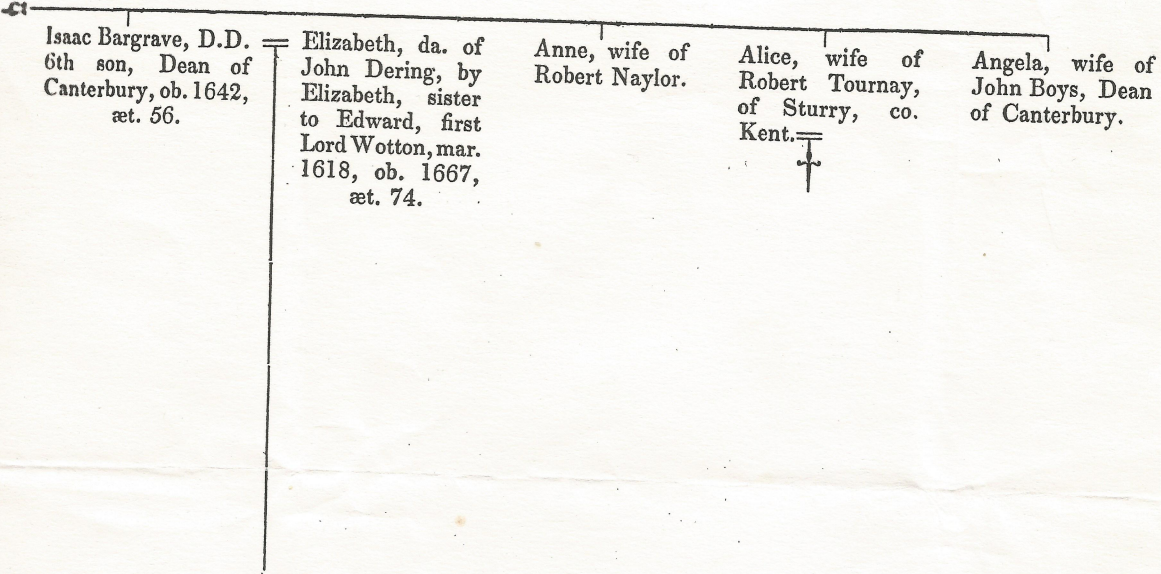 Isaac Bargrave, D.D.
6th son, Dean of
Canterbury, ob. 1642,
æt. 56.
Elizabeth, da. of
John Dering, by
Elizabeth, sister
to Edward, first
Lord Wotton, mar.
1618, ob. 1667,
æt. 74.
Anne, wife of
Robert Naylor.
Alice, wife of
Robert Tournay,
of Sturry, co.
Kent.
Angela, wife of
John Boys, Dean
of Canterbury.